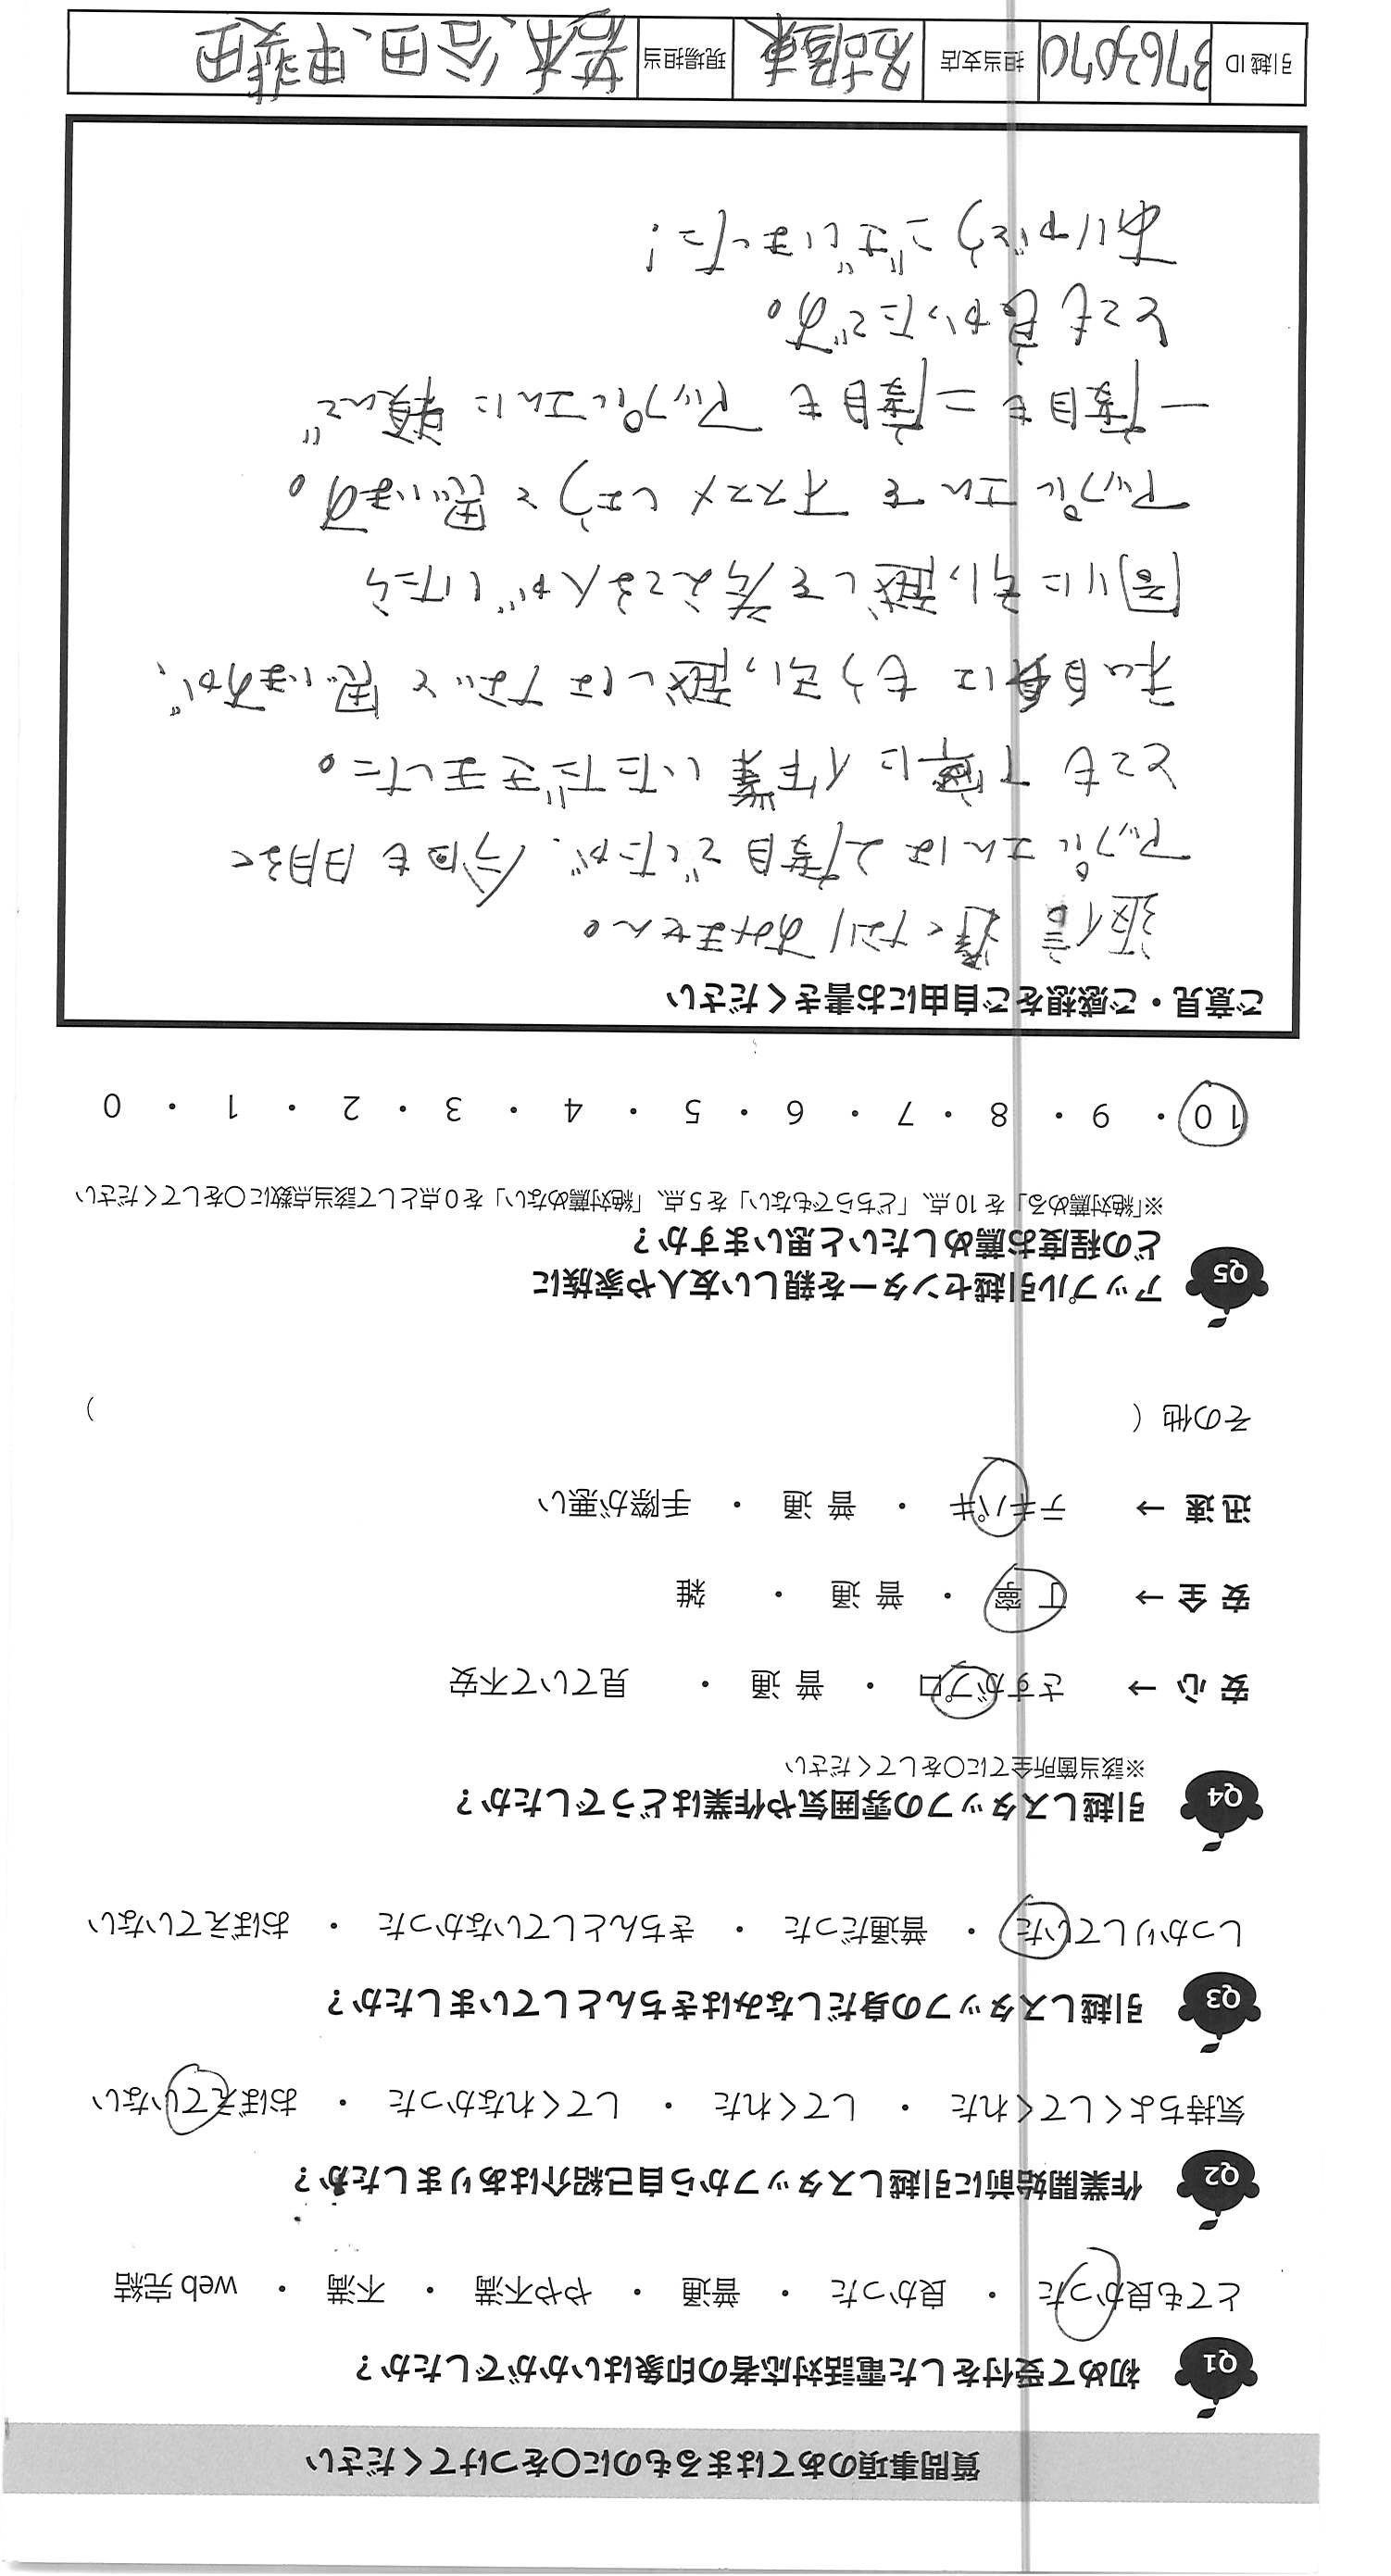 質問事項のあてはまるものに〇をつけてください
Q1 初めて受付をした電話対応者の印象はいかがでしたか？
とても良かった ・ 良かった ・ 普通 ・ やや不満 ・ 不満 ・ web 完結
Q2 作業開始前に引越しスタッフから自己紹介はありましたか？
気持ちよくしてくれた ・ してくれた ・ してくれなかった ・ おぼえていない
Q3 引越しスタッフの身だしなみはきちんとしていましたか？
しっかりしていた ・ 普通だった ・ きちんとしていなかった ・ おぼえていない
Q4 引越しスタッフの雰囲気や作業はどうでしたか？
※該当箇所全てに〇をしてください
安 心 → さすがプロ ・ 普 通 ・ 見ていて不安
安 全 → 丁 寧 ・ 普 通 ・ 雑
迅 速 → テキパキ ・ 普 通 ・ 手際が悪い
その他（ ）
Q5 アップル引越センターを親しい友人や家族に
どの程度お薦めしたいと思いますか？
※「絶対薦める」を 10 点、「どちらでもない」を 5 点、「絶対薦めない」を 0 点として該当点数に〇をしてください
10 ・ 9 ・ 8 ・ 7 ・ 6 ・ 5 ・ 4 ・ 3 ・ 2 ・ 1 ・ 0
ご意見・ご感想をご自由にお書きください
返信 遅くなりすみません。
アップルさんは2度目でしたが、今回も明るく
とても丁寧に作業いただきました。
私自身はもう引っ越しはないと思いますが、
周りに引っ越しを考えてる人がいたら
アップルさんをオススメしようと思います。
一度目も二度目もアップルさんに頼んで
とても良かったです。
ありがとうございました！
引越 ID 3763070 担当支店 名古屋東 現場担当 若本、谷田、甲斐田